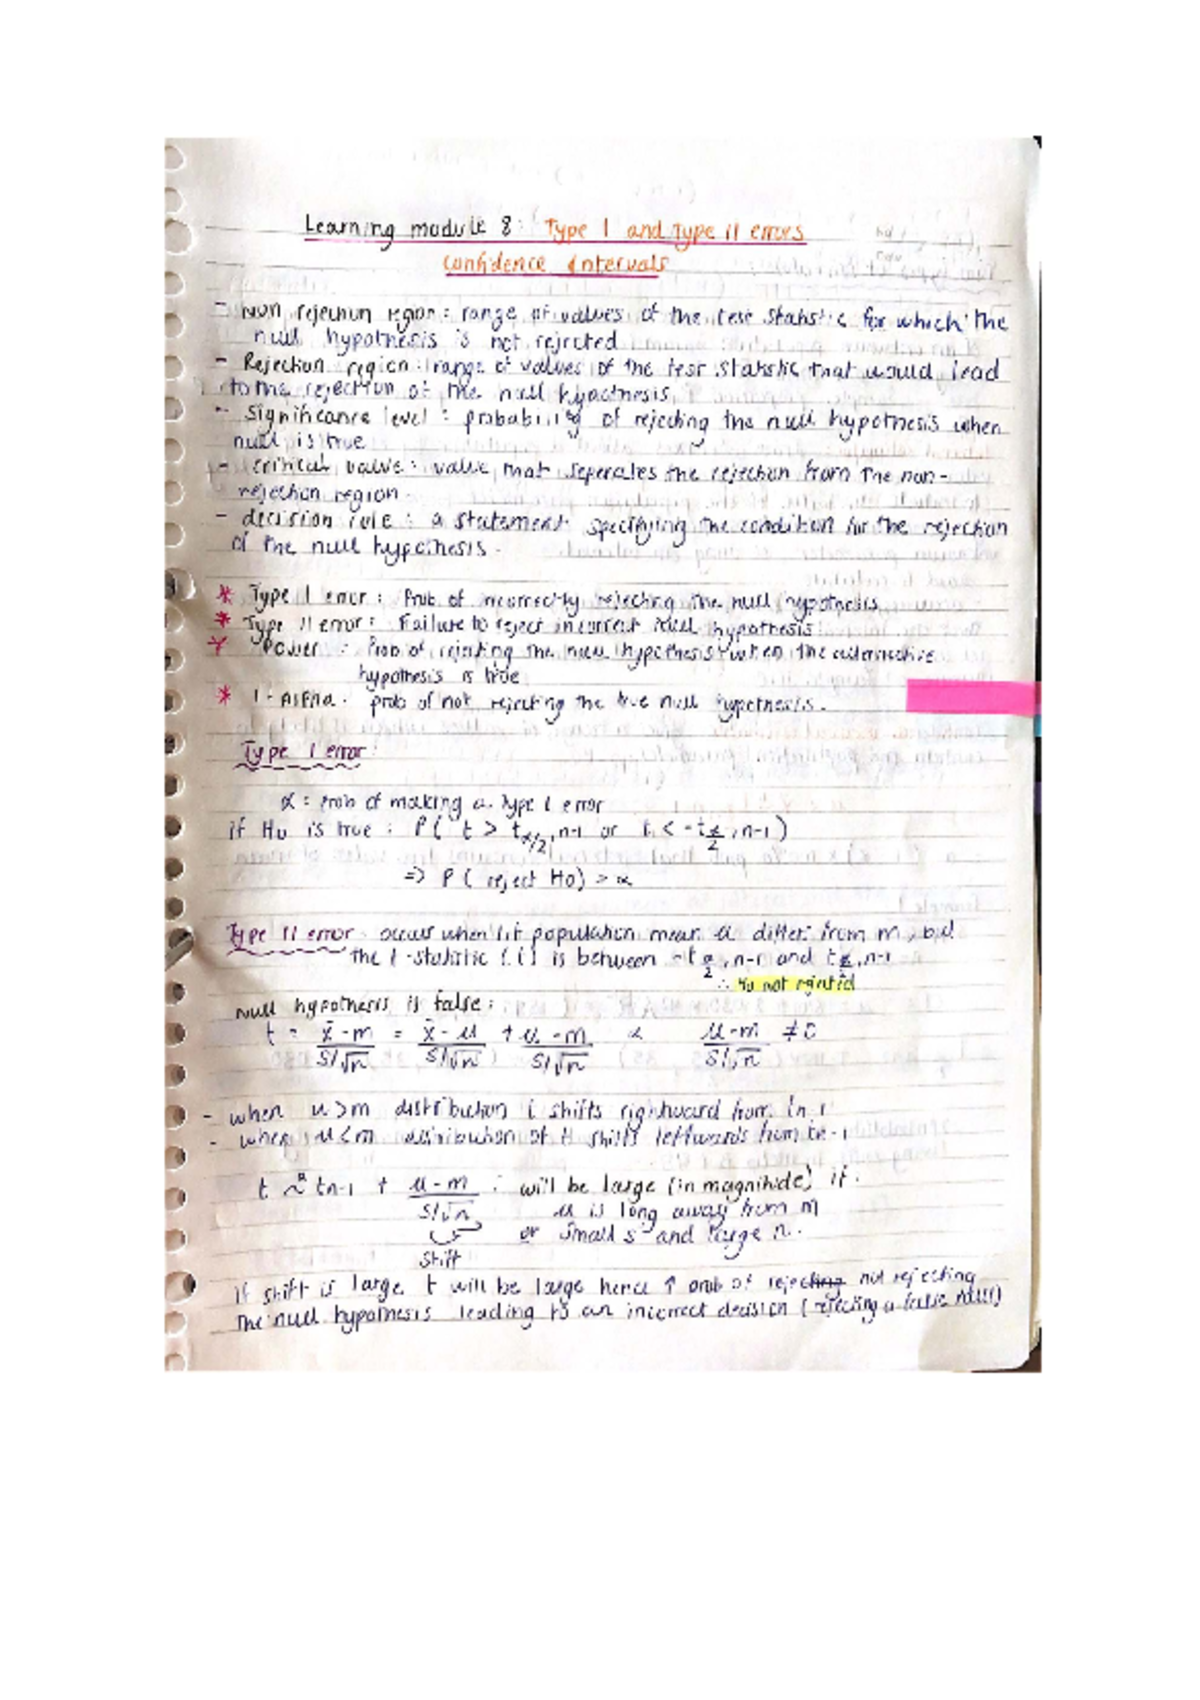 Learning module 8: Type I and Type II errors
Confidence Intervals
- Non rejection region: range of values of the test statistic for which the
null hypothesis is not rejected
- Rejection region: range of values of the test statistic that would lead
to the rejection of the null hypothesis
- Significance level: probability of rejecting the null hypothesis when
null is true
- critical value: value that seperates the rejection from the non-
rejection region
- decision rule: a statement specifying the condition for the rejection
of the null hypothesis.
* Type I error: Prob of incorrectly rejecting the null hypothesis
* Type II error: Failure to reject incorrect null hypothesis
* Power: Prob of rejecting the null hypothesis when the alternative
hypothesis is true
* 1-Alpha: prob of not rejecting the true null hypothesis.
Type I error:
α = prob of making a Type I error
if H0 is true: P( t > tα/2, n-1 or t < -tα/2, n-1)
=> P( reject H0) = α
Type II error occurs when population mean differ from m, but
the t-statistic (t) is between -tα/2, n-1 and tα/2, n-1
∴ H0 not rejected
null hypothesis is false:
t = x̄-m / s/√n = x̄-μ / s/√n + μ-m / s/√n & μ-m / s/√n ≠ 0
- when μ>m distribution t shifts rightward from tn-1
- when μ<m distribution of t shifts leftwards from tn-1
t ~ª tn-1 + μ-m / s/√n : will be large (in magnitude) if:
μ is long away from m
or small s and large n.
Shift
If shift is large t will be large hence ↑ prob of not rejecting
the null hypothesis leading to an incorrect decision (rejecting a false null)